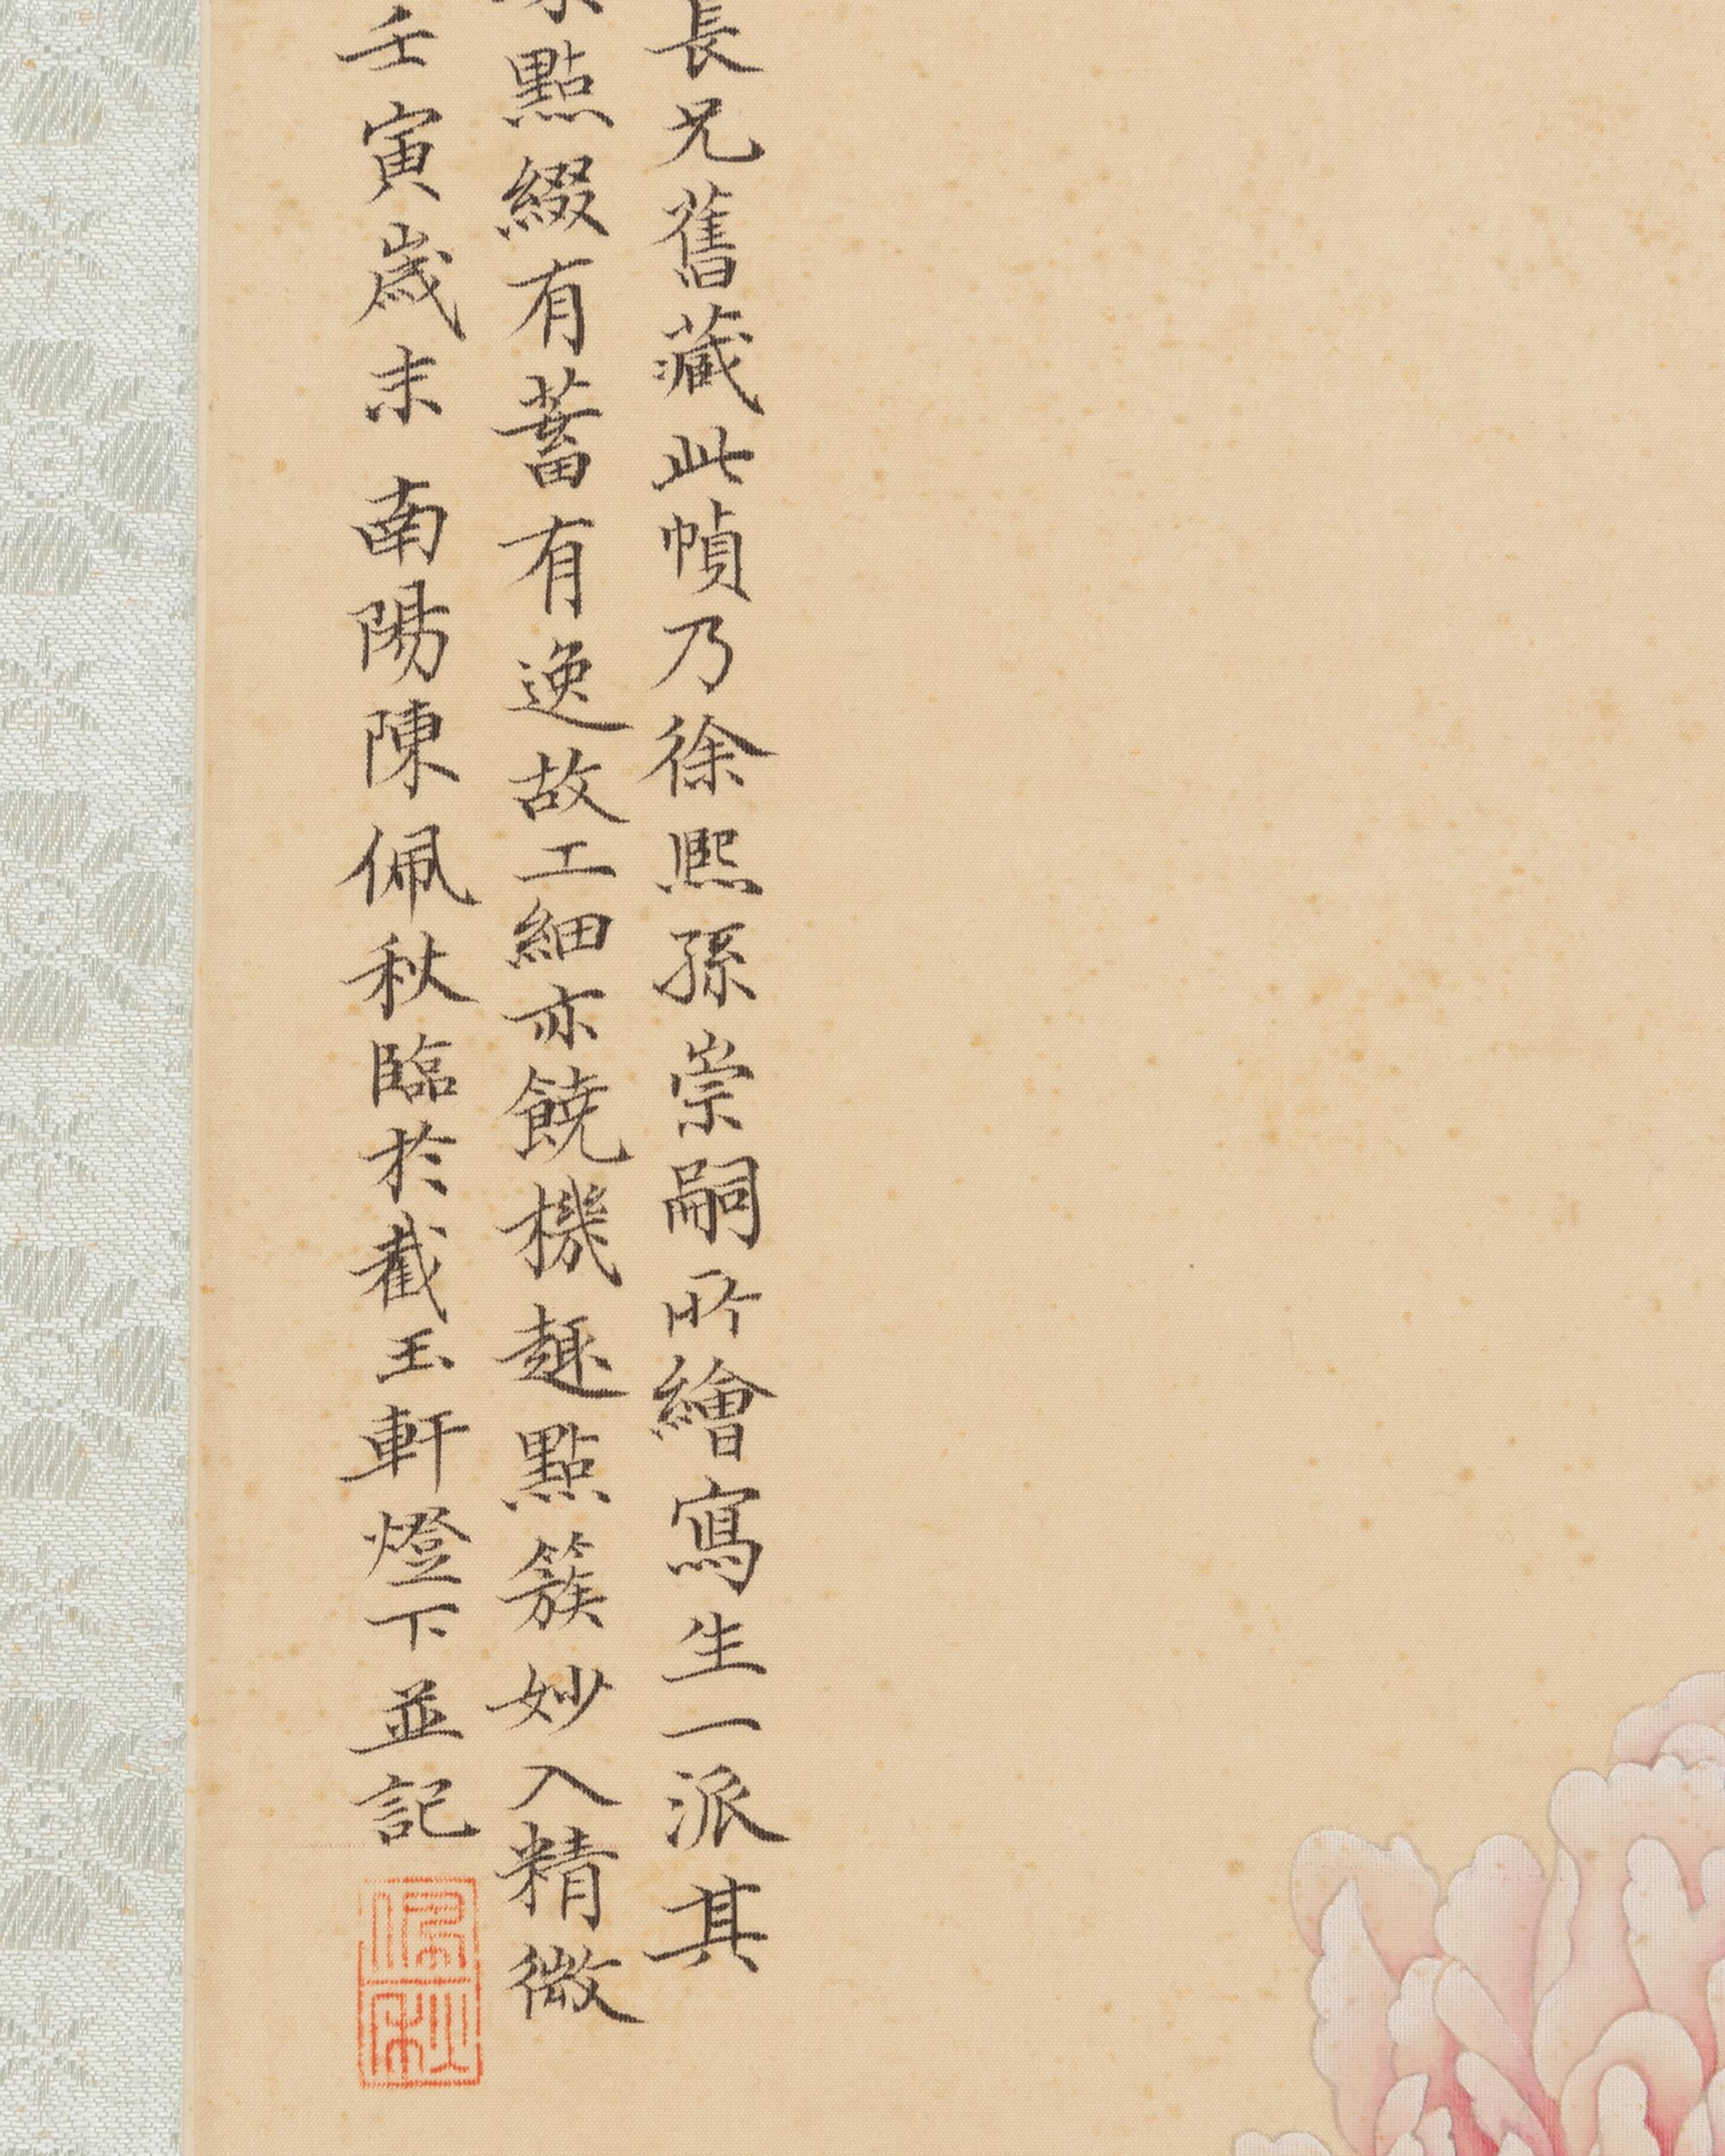 長兄舊藏此幀乃徐熙孫崇嗣所繪寫生一派其
點綴有蓄有逸故工細亦饒機趣點簇妙入精微
壬寅歲末 南陽陳佩秋臨於截玉軒燈下並記
佩秋